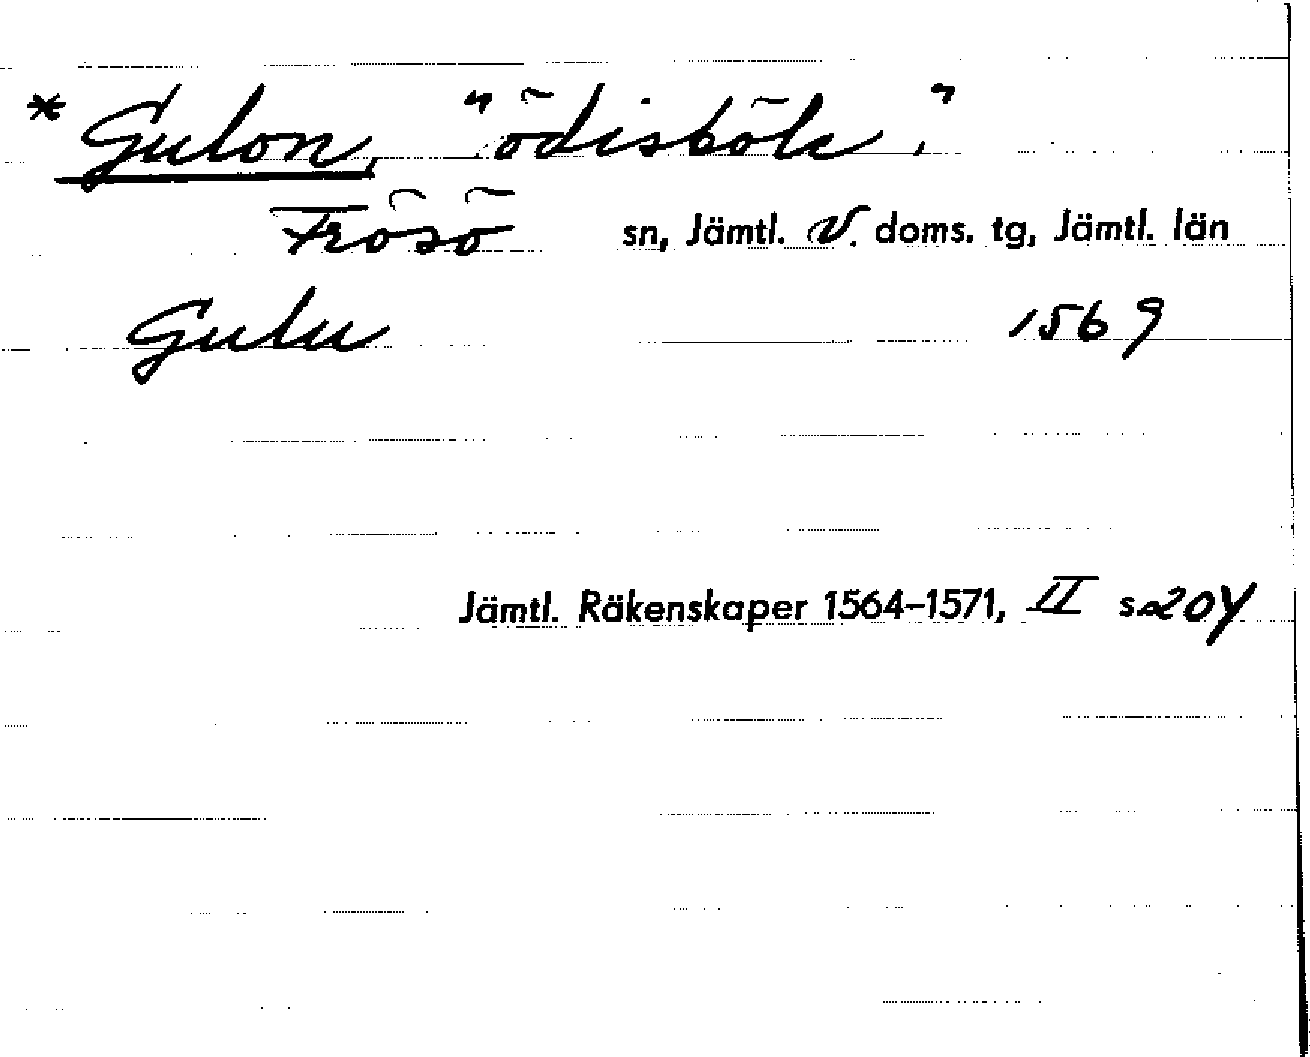 * Gulon, "ödisböle".
Frösö sn, Jämtl. V. doms. tg, Jämtl. län
Gulu 1569
Jämtl. Räkenskaper 1564–1571, II s. 204